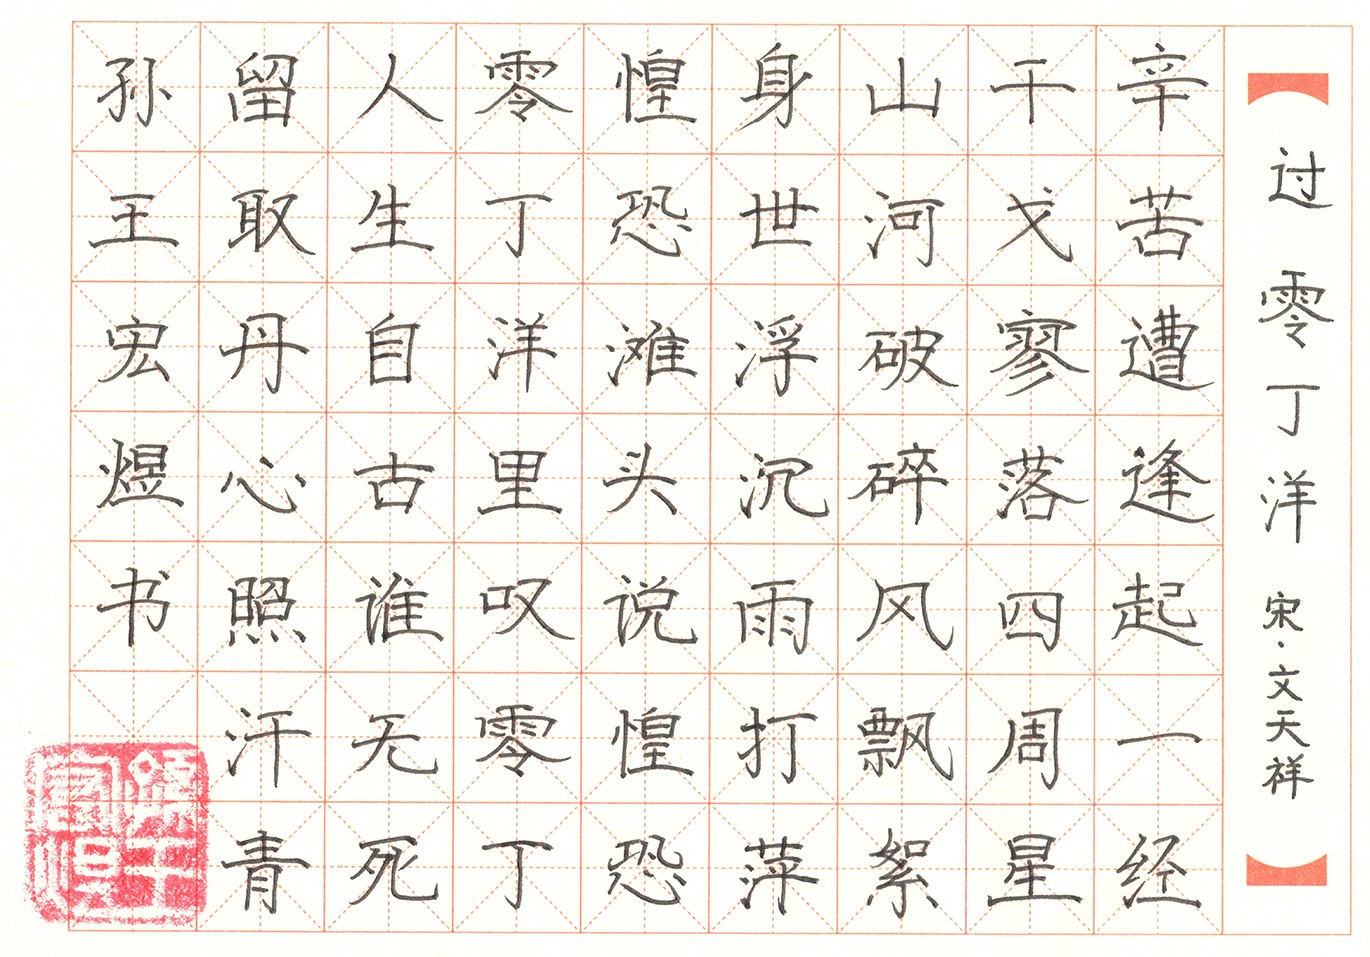 过零丁洋 宋·文天祥
辛苦遭逢起一经
干戈寥落四周星
山河破碎风飘絮
身世浮沉雨打萍
惶恐滩头说惶恐
零丁洋里叹零丁
人生自古谁无死
留取丹心照汗青
孙王宏煜书